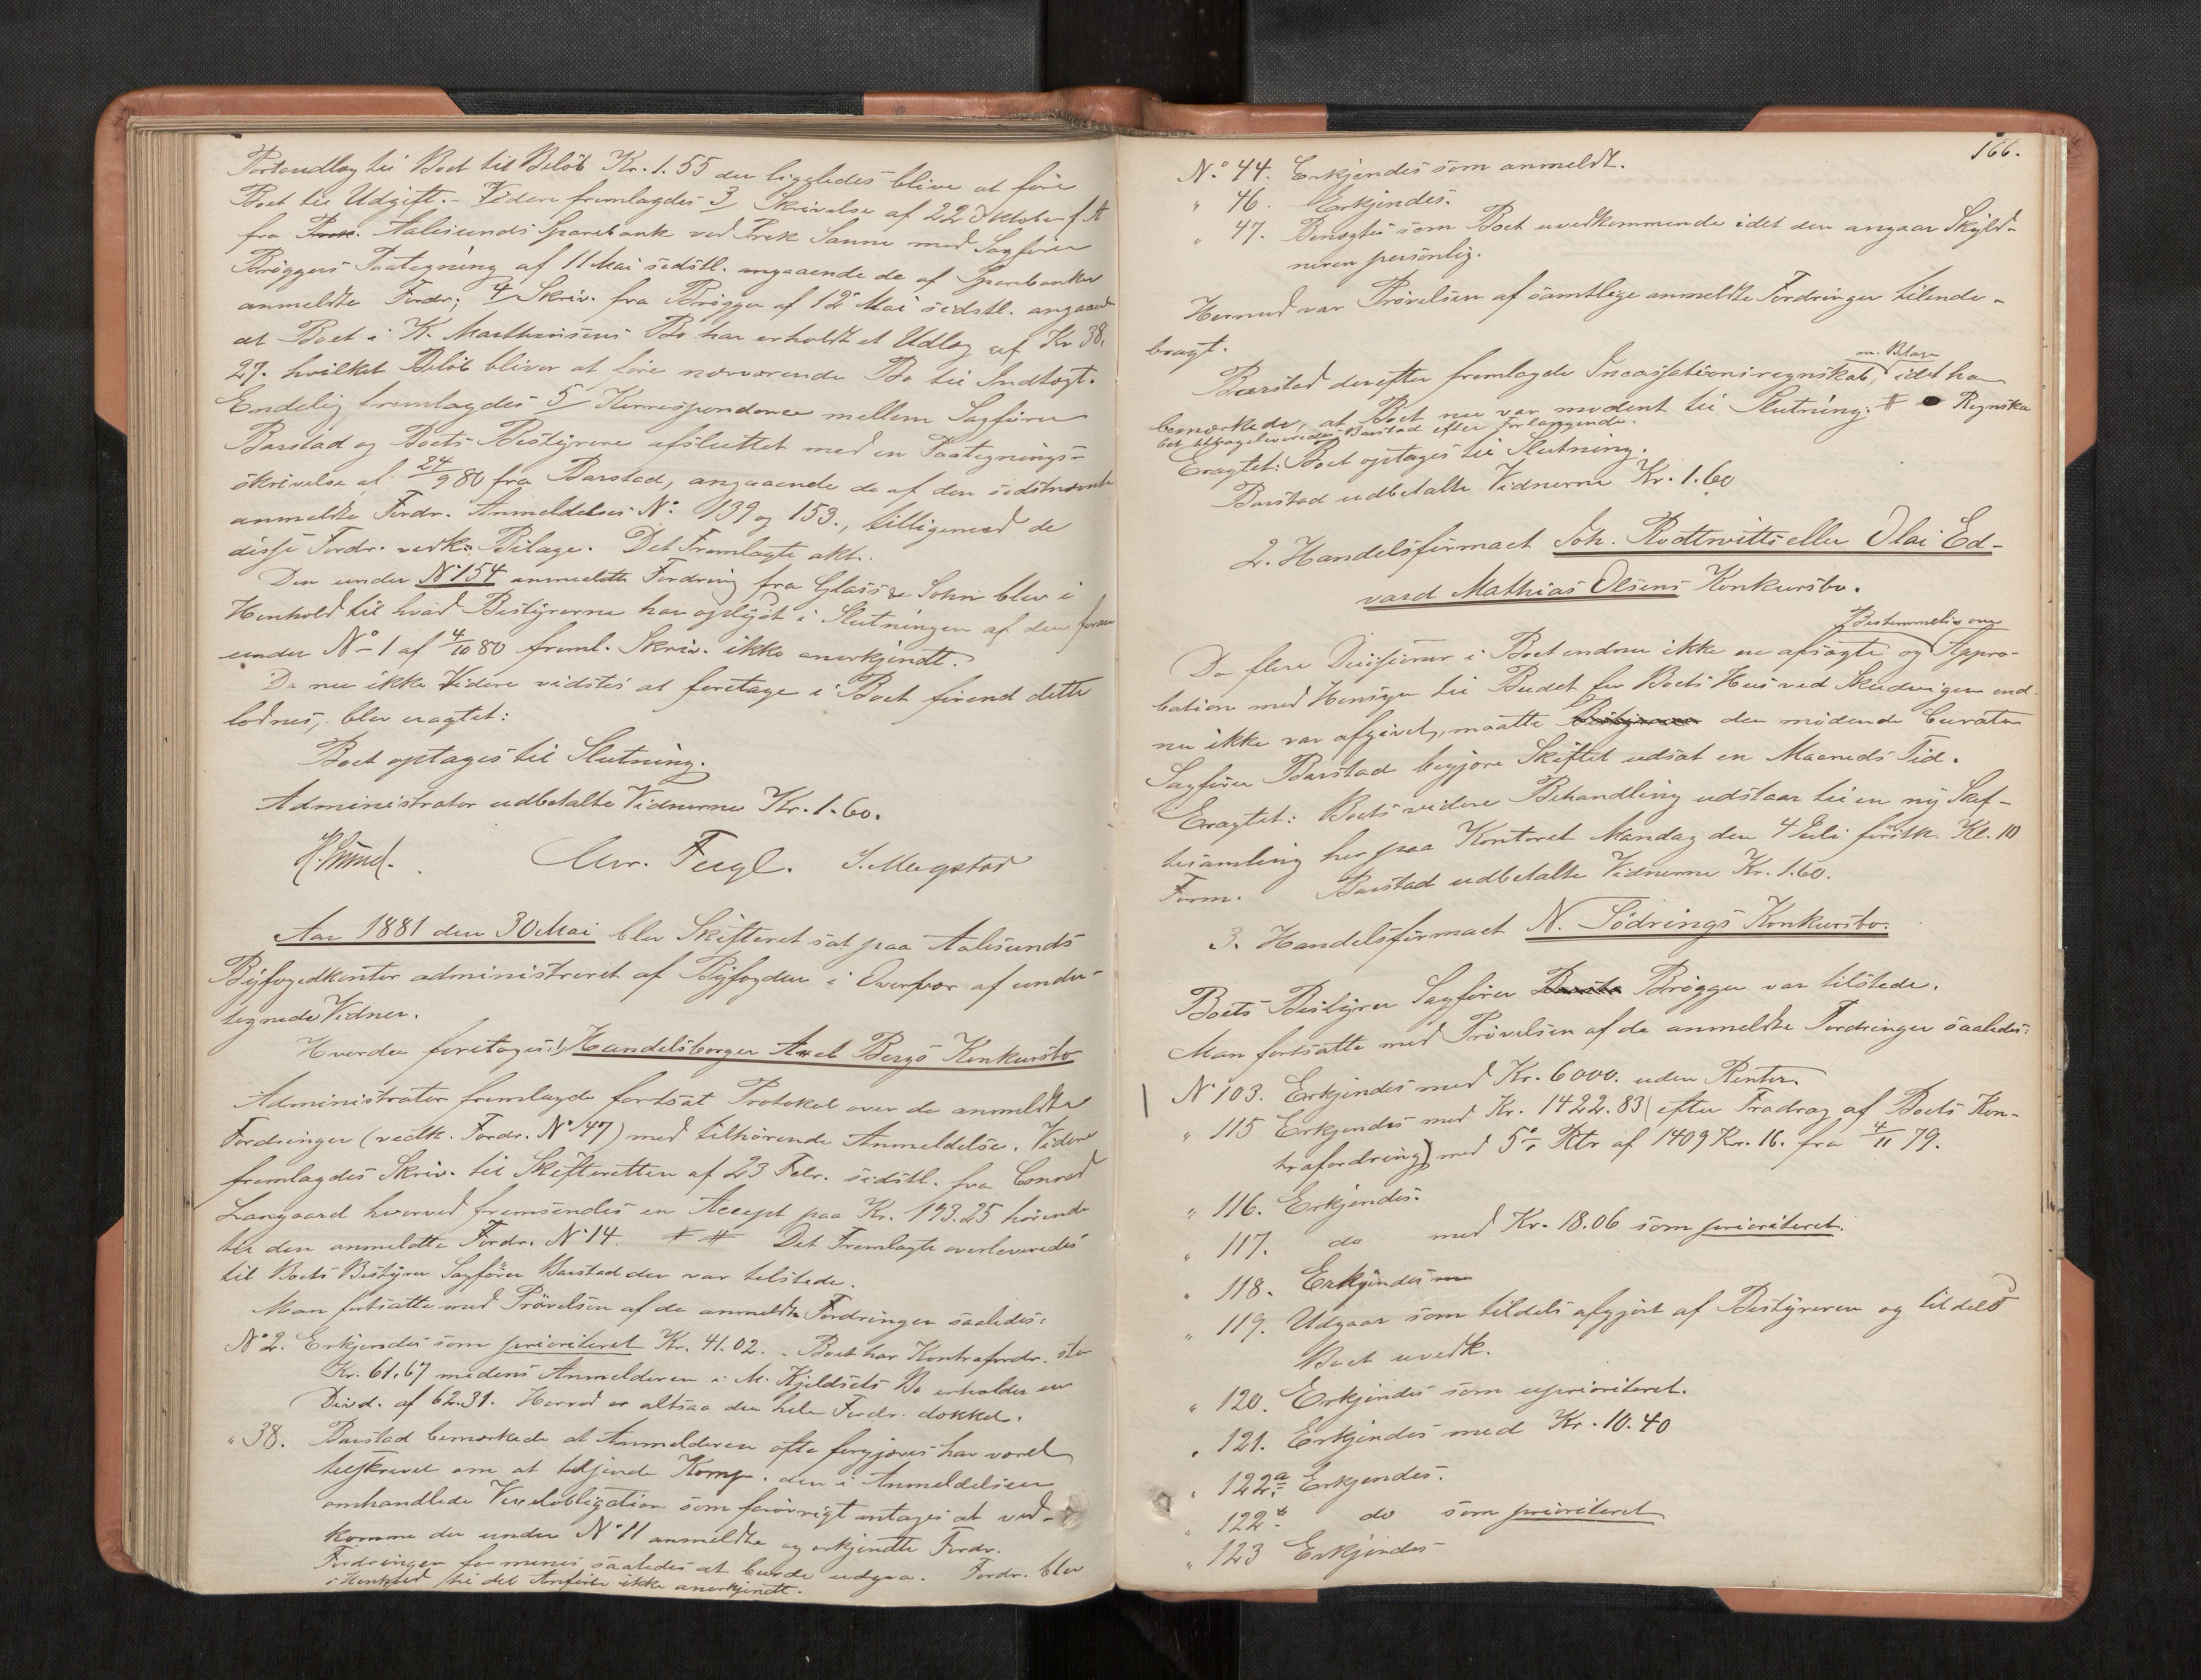 Portoudlæg til Boet til Beløb Kr. 1.55 der ligeledes blive at føre
Boet til Udgift. - Videre fremlagdes 3/ Skrivelse af 22 Oktober f. A
fra Aalesunds Sparebank ved Frek Sanne med Sagfører
Brøggers Paategning af 11 Mai sidstl. angaaende de af Sparebanken
anmeldte Fordr; 4/ Skriv. fra Brøgger af 12 Mai sidstl. angaaende
at Boet i K. Marthinsens Bo har erholdt et Udlæg af Kr 38.
27. hvilket Beløb bliver at føre nærværende Bo til Indtægt.
Endelig fremlagdes 5/ Korrespondence mellem Sagfører
Barstad og Boets Bestyrere afsluttet med en Paategnings-
skrivelse af 24/9 80 fra Barstad, angaaende de af den sidstnævnte
anmeldte Fordr. Anmeldelses No 139 og 153., tilligemed de
disse Fordr. vedk. Bilage. Det Fremlagte akt.
Den under No 154 anmeldte Fordring fra Glass & Sohn blev i
Henhold til hvad Bestyrerne har oplyst i Slutningen af den foran
under No 1 af 4/10 80 freml. Skriv. ikke anerkjendt.
Da nu ikke Videre vidstes at foretage i Boet førend dette
lodnes, blev eragtet:
Boet optages til Slutning.
Administrator udbetalte Vidnerne Kr. 1.60.
Chr. Fugl. J. Megstad
Aar 1881 den 30 Mai blev Skifteret sat paa Aalesunds
Byfogedkontor administreret af Byfogden i Overvær af under-
tegnede Vidner.
Hvorda foretoges: 1) Handelsborger Axel Bergs Konkursbo
Administrator fremlagde fortsat Protokol over de anmeldte
Fordringer (vedk. Fordr. No 47) med tilhørende Anmeldelse. Videre
fremlagdes Skriv. til Skifteretten af 23 Febr. sidstl. fra Conrad
Langaard hvorved fremsendes en Accept paa Kr. 193.25 hørende
til den anmeldte Fordr. No 14. # Det Fremlagte overleveredes
til Boets Bestyrer Sagfører Barstad der var tilstede.
Man fortsatte med Prøvelsen af de anmeldte Fordringer saaledes:
No 2. Erkjendes som prioriteret Kr. 41.02. - Boet har Kontrafordr. stor
Kr. 61.67 medens Anmelderen i M. Kjeldsets Bo erholder en
Divid. af 62.31. Herved er altsaa den hele Fordr. dækket.
" 38. Barstad bemærkede at Anmelderen ofte forgjæves har været
tilskrevet om at tilsende Komp. den i Anmeldelsen
omhandlede Vexelobligation som forøvrigt antages at ved-
komme den under No 11 anmeldte og erkjendte Fordr.
Fordringen formenes saaledes at burde udgaa. Fordr. blev
i Henhold til det Anførte ikke anerkjendt.
166.
No 44. Erkjendes som anmeldt.
" 46. Erkjendes.
" 47. Benægtes som Boet uvedkommende idet den angaar Skyld-
neren personlig.
Hermed var Prøvelsen af samtlige anmeldte Fordringer tilende-
bragt.
m. Bilage
Barstad derefter fremlagde Incassationsregnskab, idet han
bemærkede, at Boet nu var modent til Slutning. # Regnska
bet tilbageleveredes Barstad efter Forlangende.
Eragtet: Boet optages til Slutning.
Barstad udbetalte Vidnerne Kr. 1.60
2. Handelsfirmaet Joh. Rodtwitts eller Olai Ed-
vard Mathias Olsens Konkursbo.
Bestemmelse om
Da flere Decisioner i Boet endnu ikke er afsagte og Appro-
bation med Hensyn til Budet for Boets Hus ved Skudvigen end-
nu ikke var afgivet, maatte den mødende Curator
Sagfører Barstad begjære Skiftet udsat en Maaneds Tid.
Eragtet: Boets videre Behandling udstaar til en ny Skif-
tesamling her paa Kontoret Mandag den 4 Juli førstk. Kl. 10
Form. Barstad udbetalte Vidnerne Kr. 1.60.
3. Handelsfirmaet N. Södrings Konkursbo.
Boets Bestyrer Sagfører Brøgger var tilstede.
Man fortsatte med Prøvelsen af de anmeldte Fordringer saaledes:
No 103. Erkjendes med Kr. 6000. uden Renter.
" 115 Erkjendes med Kr. 1422.83 (efter Fradrag af Boets Kon-
trafordring) med 5% Rtr af 1409 Kr. 16. fra 4/11 79.
" 116. Erkjendes.
" 117. do med Kr. 18.06 som prioriteret.
" 118. Erkjendes
" 119. Udgaar som tildels afgjort af Bestyreren og tildels
Boet uvedk.
" 120. Erkjendes som uprioriteret.
" 121. Erkjendes med Kr. 10.40
" 122a. Erkjendes.
" 122b. do som prioriteret
" 123 Erkjendes